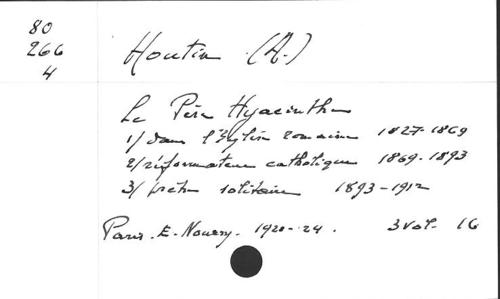 80
266
4
Houtin (A.)
Le Père Hyacinthe
1/ dans l'Eglise romaine 1827-1869
2/ réformateur catholique 1869-1893
3/ prêtre solitaire 1893-1912
Paris. E. Nourry. 1920-24. 3 vol. 16